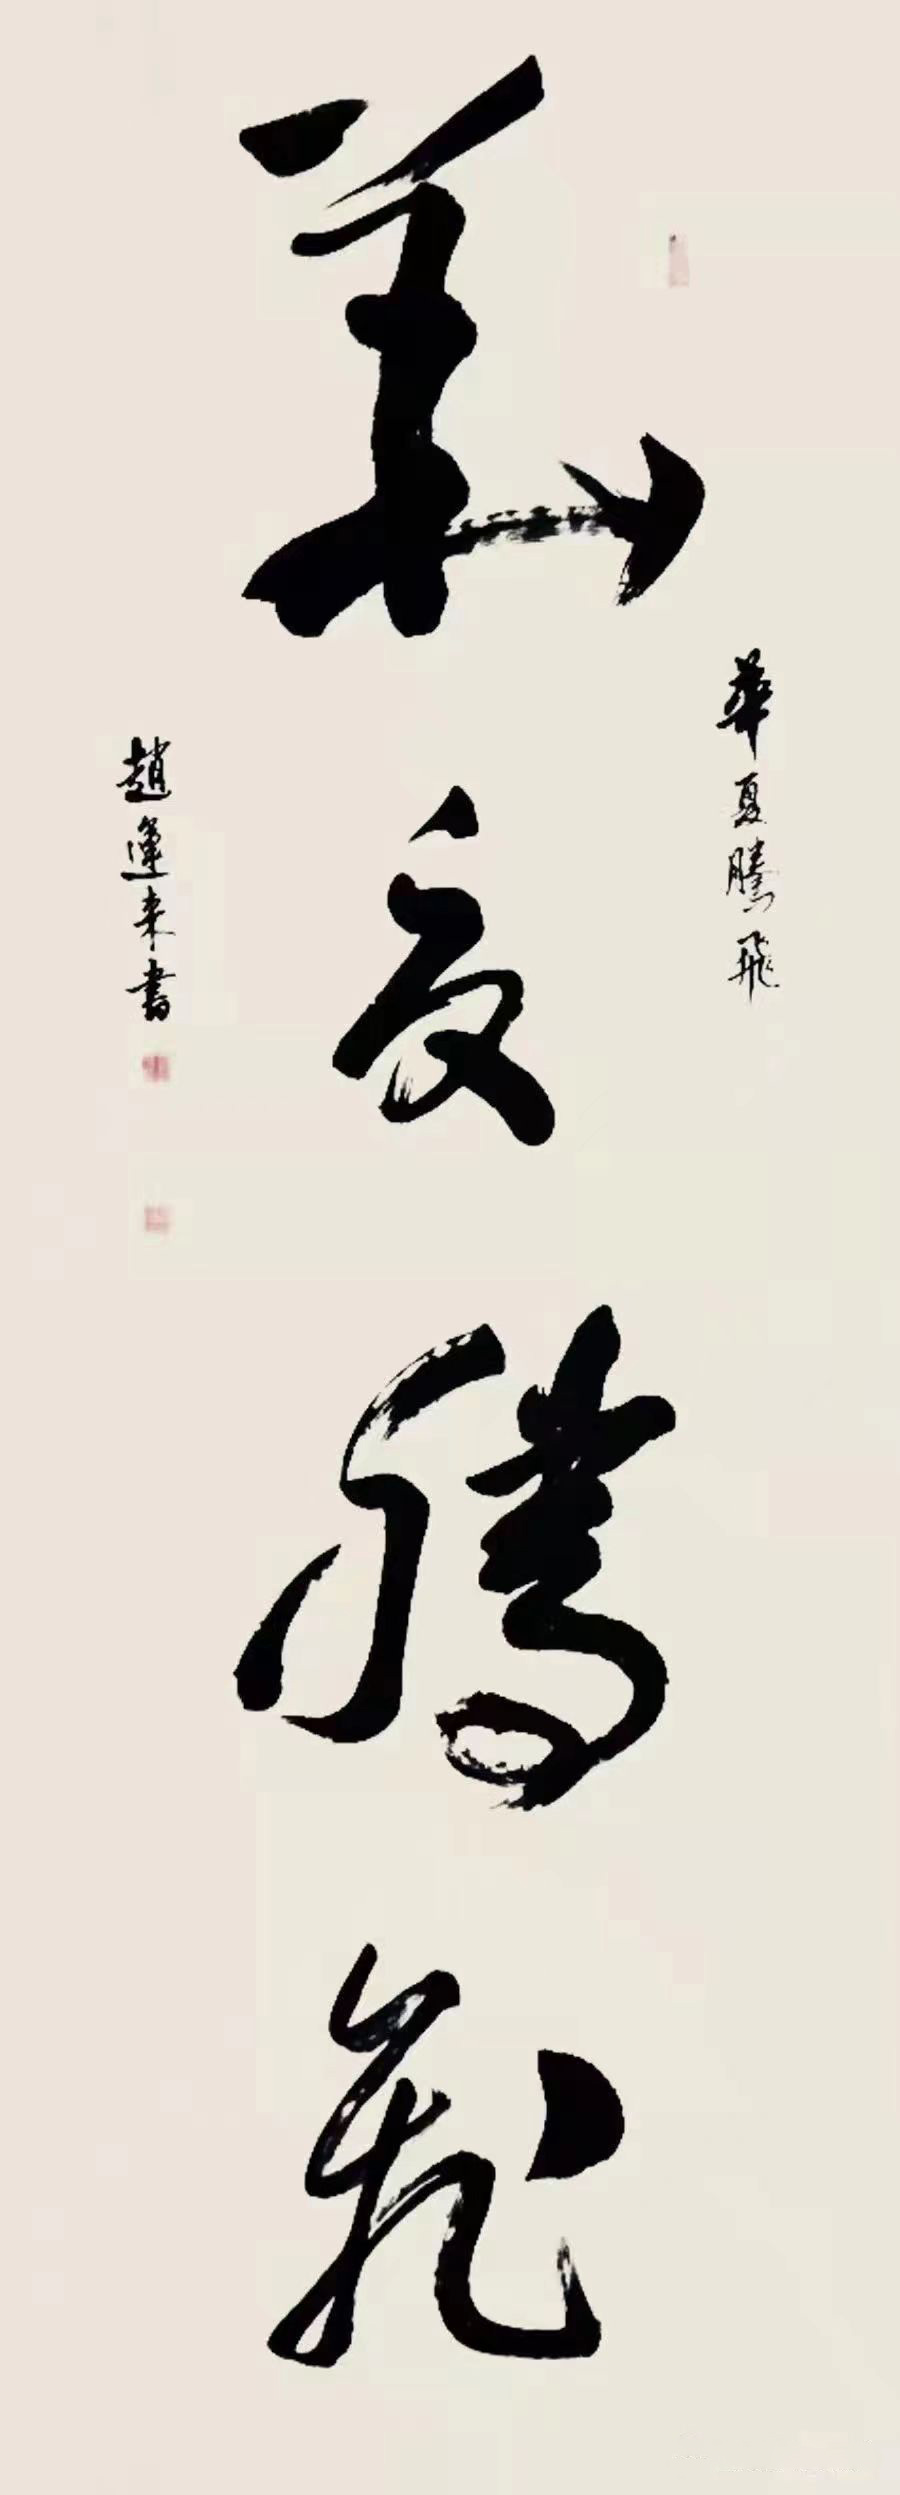 華夏騰飛
華夏騰飛
趙運来書